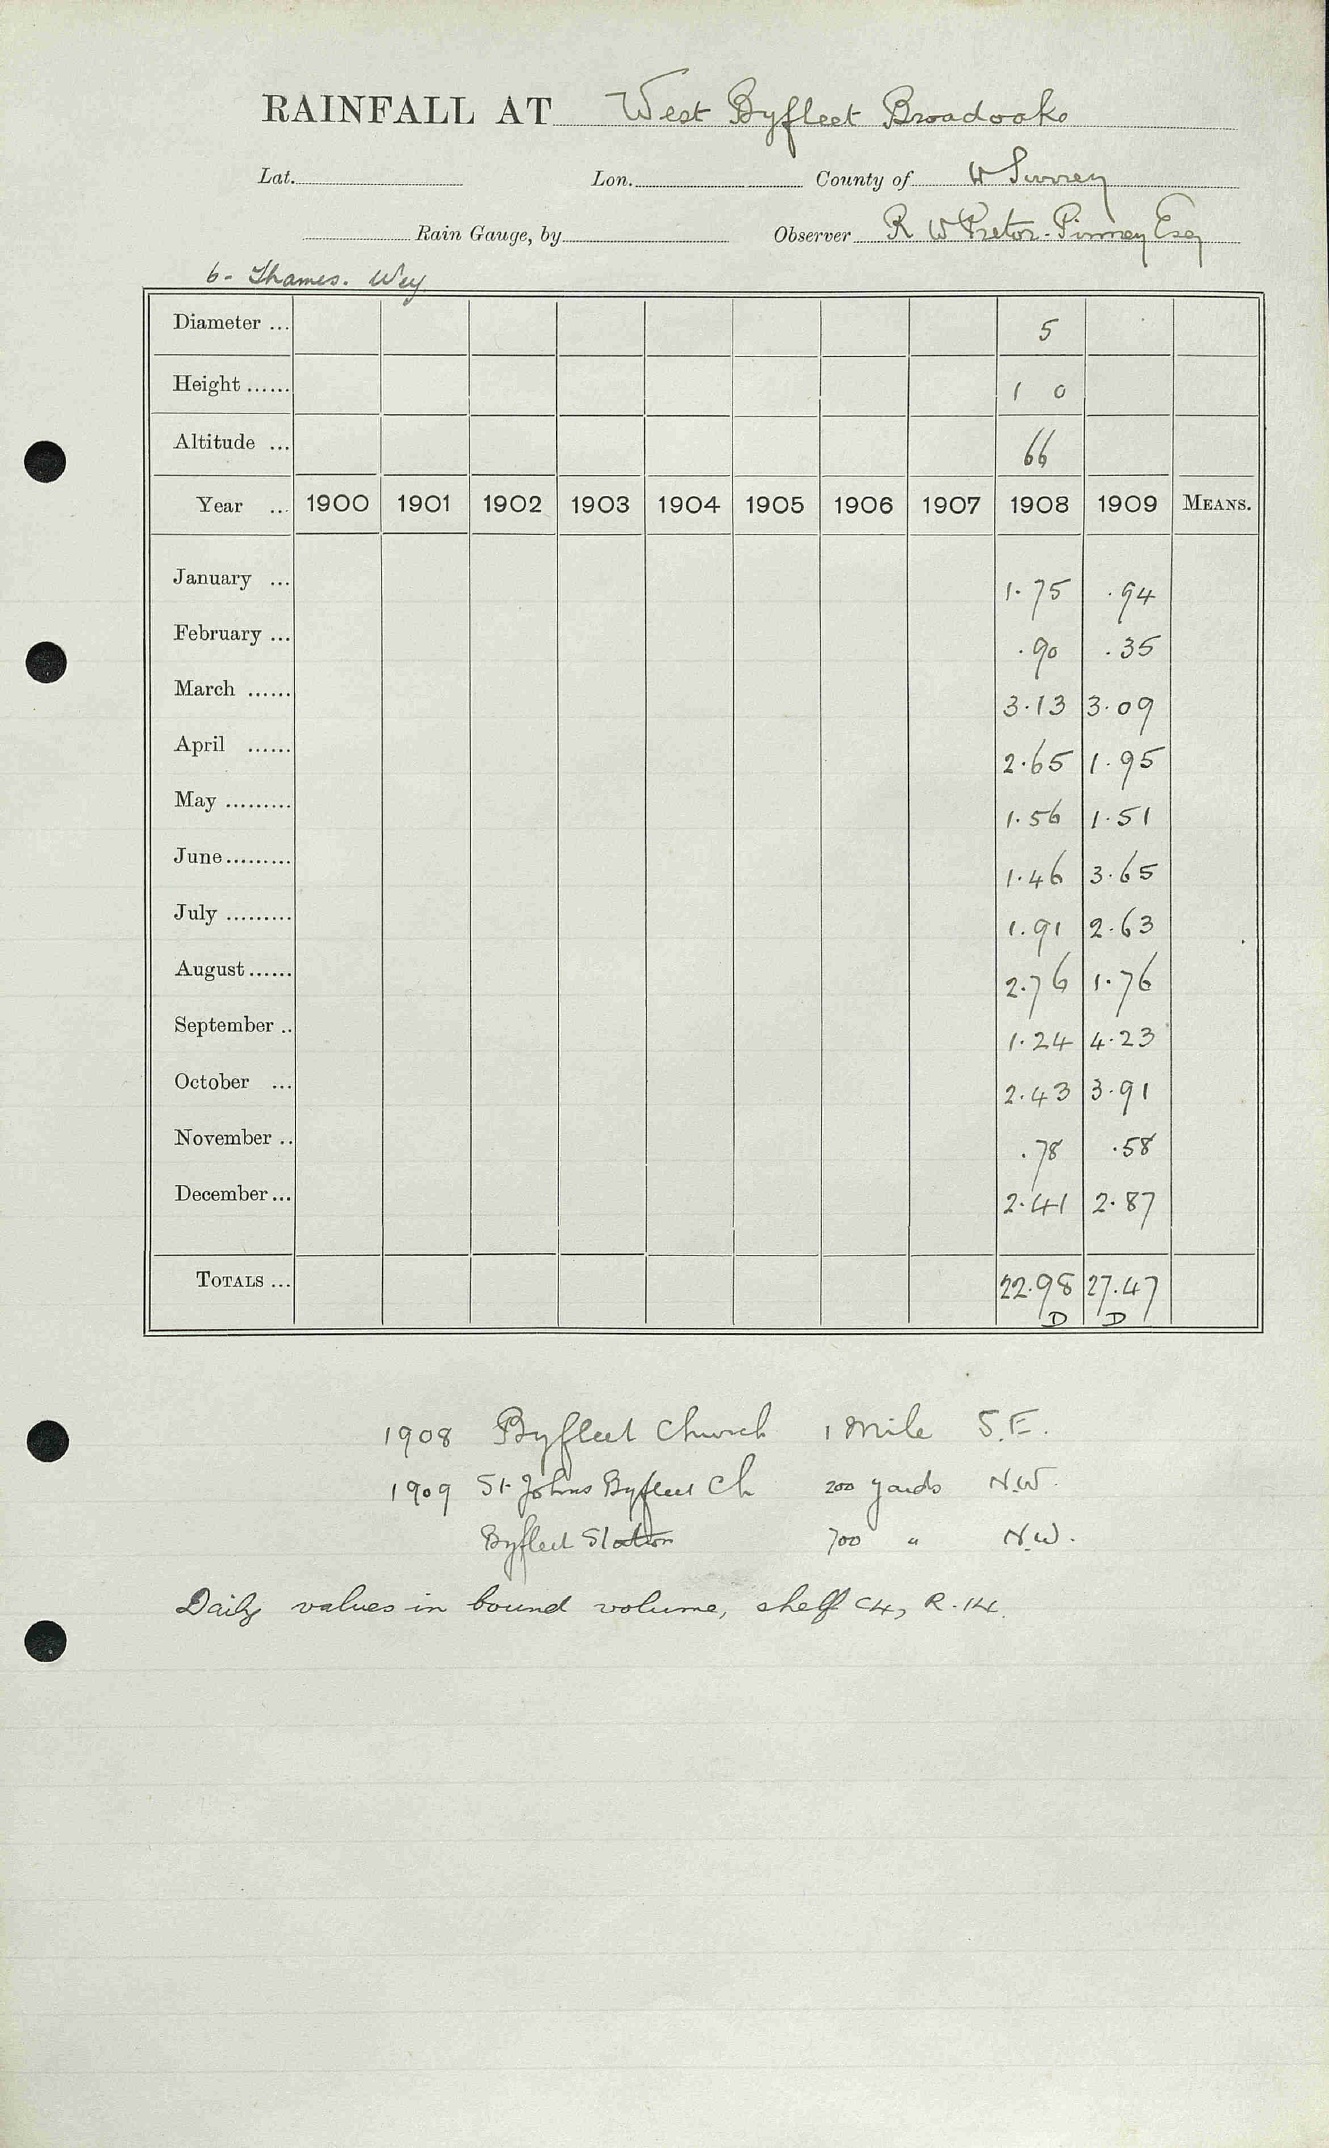 RAINFALL AT West Byfleet Broadoaks
Lat. Lon. County of W Surrey
Rain Gauge, by Observer R W Pretor-Pinney Esq
6- Thames. Wey
Diameter ... 5
Height ...... 1 0
Altitude ... 66
Year ... 1900 1901 1902 1903 1904 1905 1906 1907 1908 1909 MEANS.
January ... 1.75 .94
February ... .90 .35
March ...... 3.13 3.09
April ...... 2.65 1.95
May ......... 1.56 1.51
June ......... 1.46 3.65
July ......... 1.91 2.63
August ...... 2.76 1.76
September .. 1.24 4.23
October ... 2.43 3.91
November .. .78 .58
December ... 2.41 2.87
TOTALS ... 22.98 27.47
D D
1908 Byfleet Church 1 Mile S.E.
1909 St Johns Byfleet Ch 200 yards N.W.
Byfleet Station 700 " N.W.
Daily values in bound volume, shelf C4, R.14.